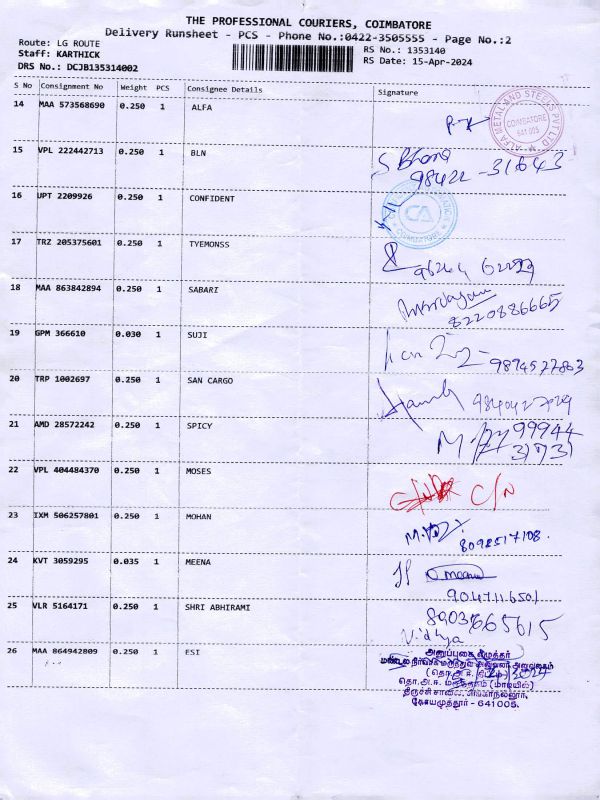 THE PROFESSIONAL COURIERS, COIMBATORE
Delivery Runsheet - PCS - Phone No.:0422-3505555 - Page No.:2
Route: LG ROUTE
RS No.: 1353140
Staff: KARTHICK
RS Date: 15-Apr-2024
DRS No.: DCJB135314002
S No Consignment No Weight PCS Consignee Details Signature
14 MAA 573568690 0.250 1 ALFA
ALFA METAL AND STEELS PVT LTD
COIMBATORE
641 005
15 VPL 222442713 0.250 1 BLN
98422-31643
16 UPT 2209926 0.250 1 CONFIDENT
CA
COIMBATORE
17 TRZ 205375601 0.250 1 TYEMONSS
18 MAA 863842894 0.250 1 SABARI
8220886665
19 GPM 366610 0.030 1 SUJI
9894577863
20 TRP 1002697 0.250 1 SAN CARGO
9840427029
21 AMD 28572242 0.250 1 SPICY
99944
31731
22 VPL 404484370 0.250 1 MOSES
C/N
23 IXM 506257801 0.250 1 MOHAN
8098517108.
24 KVT 3059295 0.035 1 MEENA
9047116501
25 VLR 5164171 0.250 1 SHRI ABHIRAMI
8903665615
Vidhya
26 MAA 864942809 0.250 1 ESI
அனுப்புகை எழுத்தர்
கோயமுத்தூர் - 641 005.